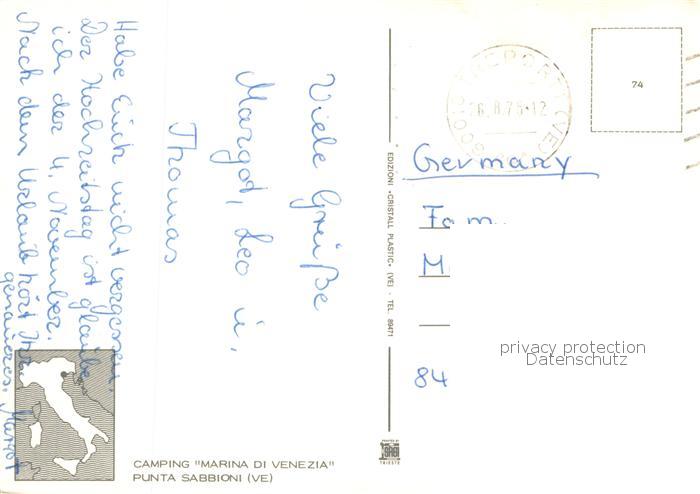 Viele Grüße
Margot, Leo u.
Thomas
Habe Euch nicht vergessen.
Der Hochzeitstag ist glaube
ich der 4. November.
Nach dem Urlaub hört Ihr
genaueres. Margot
CAMPING "MARINA DI VENEZIA"
PUNTA SABBIONI (VE)
EDIZIONI «CRISTALL PLASTIC» (VE) - TEL. 89471
PRINTED BY
TRIESTE
(VE)
26.8.75-12
74
Germany
Fam.
M
84
privacy protection
Datenschutz